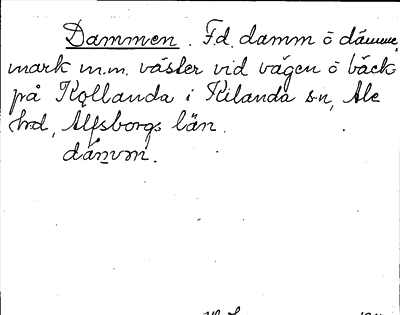 Dammen. Fd. damm ö dämme,
mark m.m. väster vid vägen ö bäck
på Kollanda i Kilanda sn, Ale
hd, Älfsborgs län.